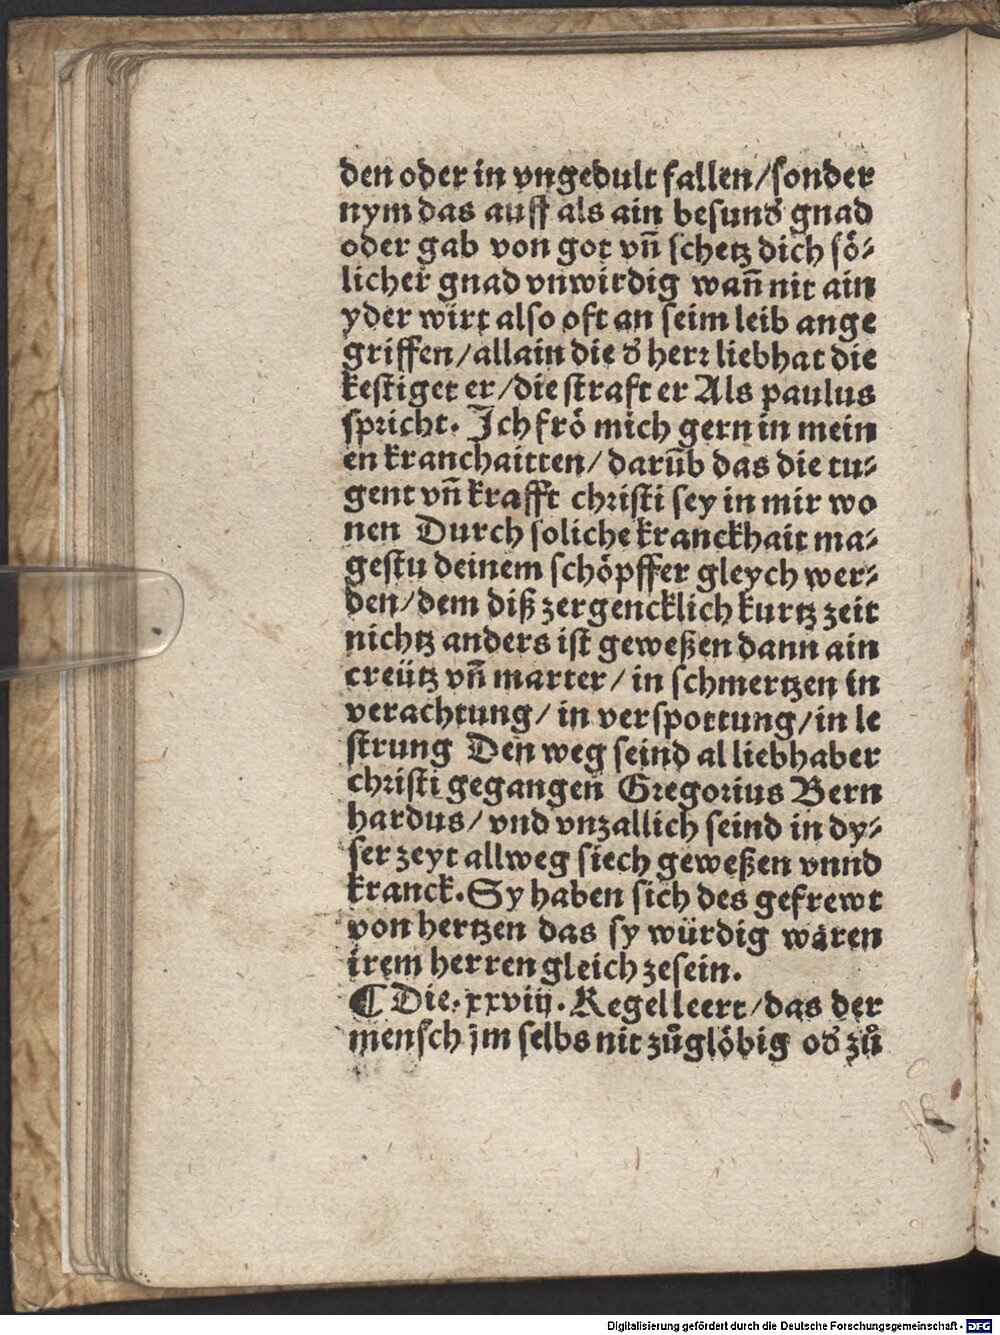 den oder in vngedult fallen/sonder
nym das auff als ain besund̕ gnad
oder gab von got vn̄ schetz dich sö⸗
licher gnad vnwirdig wan̄ nit ain
yder wirt also oft an seim leib ange
griffen/allain die d̕ herꝛ liebhat die
kestiget er/die straft er Als paulus
spꝛicht. Ich frö mich gern in mein
en kranchaitten/darūb das die tu⸗
gent vn̄ krafft chꝛisti sey in mir wo
nen Durch soliche kranckhait ma⸗
gestu deinem schöpffer gleych wer⸗
den/dem diß zergencklich kurtz zeit
nichtz anders ist geweßen dann ain
creütz vn̄ marter/in schmertzen in
verachtung/in verspottung/in le
strung Den weg seind al liebhaber
chꝛisti gegangen Gregoꝛius Bern
hardus/vnd vnzallich seind in dy⸗
ser zeyt allweg siech geweßen vnnd
kranck. Sy haben sich des gefrewt
von hertzen das sy würdig waren
irem herren gleich zesein.
¶ Die. xxviij. Regel leert/das der
mensch jm selbs nit zůglöbig od̕ zů
Digitalisierung gefördert durch die Deutsche Forschungsgemeinschaft - DFG